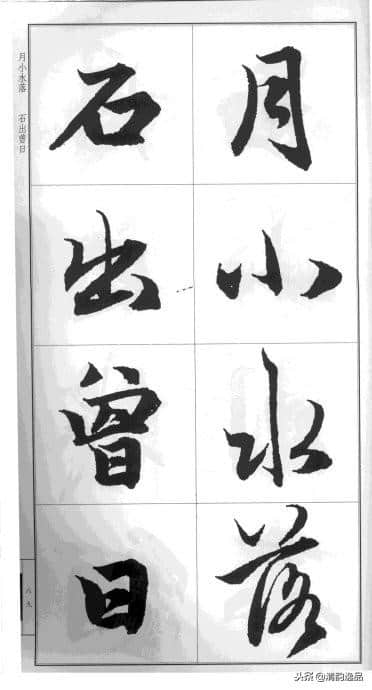 月小水落
石出曾日
月小水落 石出曾日
八九
头条@清韵逸品